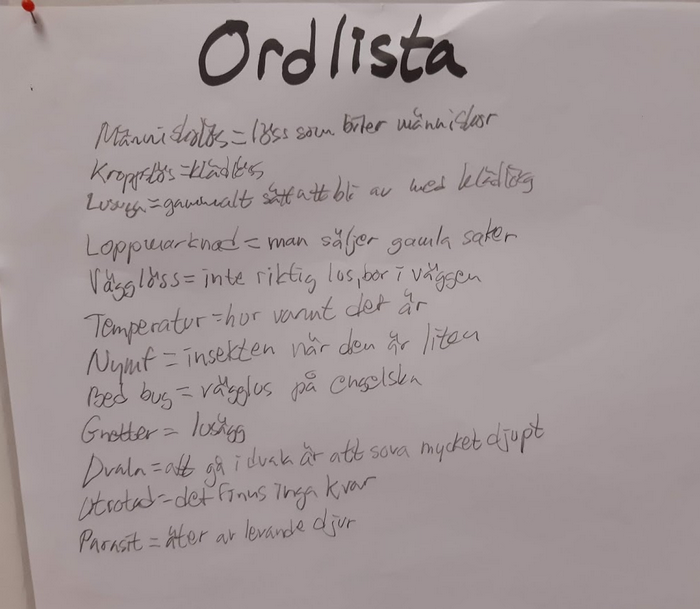 Ordlista
Människolös = löss som biter människor
Kroppslös = klädlös
= gammalt sätt att bli av med klädlös
Loppmarknad = man säljer gamla saker
Vägglöss = inte riktig lus, bor i väggen
Temperatur = hor varmt det är
Nymf = insekten när den är liten
Bed bug = vägglus på engelska
Gnetter = lusägg
Dvala = att gå i dvala är att sova mycket djupt
Utrotad = det finns inga kvar
Parasit = äter av levande djur